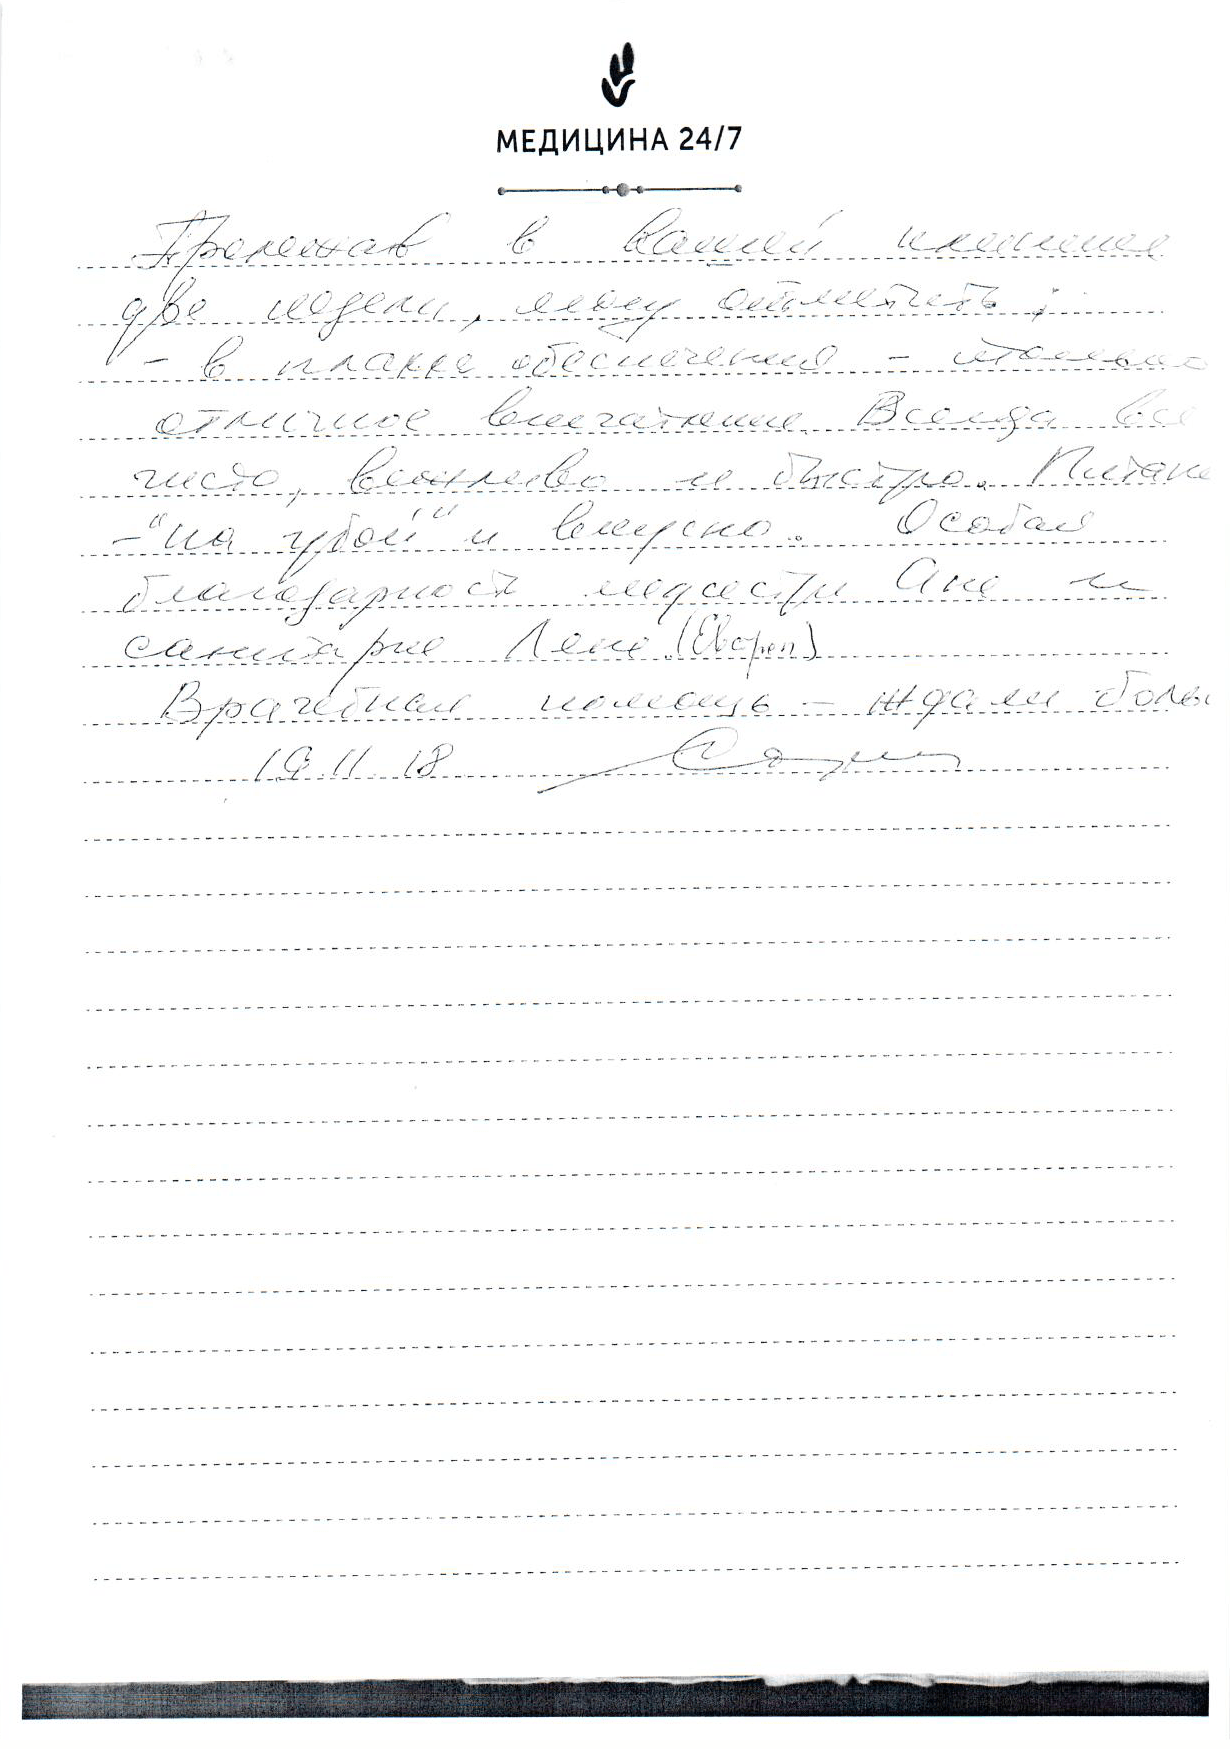 МЕДИЦИНА 24/7
Пролежав в вашей клинике
две недели, могу отметить:
- в плане обеспечения - только
отличное впечатление. Всегда все
чисто, вежливо и быстро. Питание
- "на убой" и вкусно. Особая
благодарность медсестре Ане и
санитарке Лене
Врачебная помощь - ждали боль
19.11.18